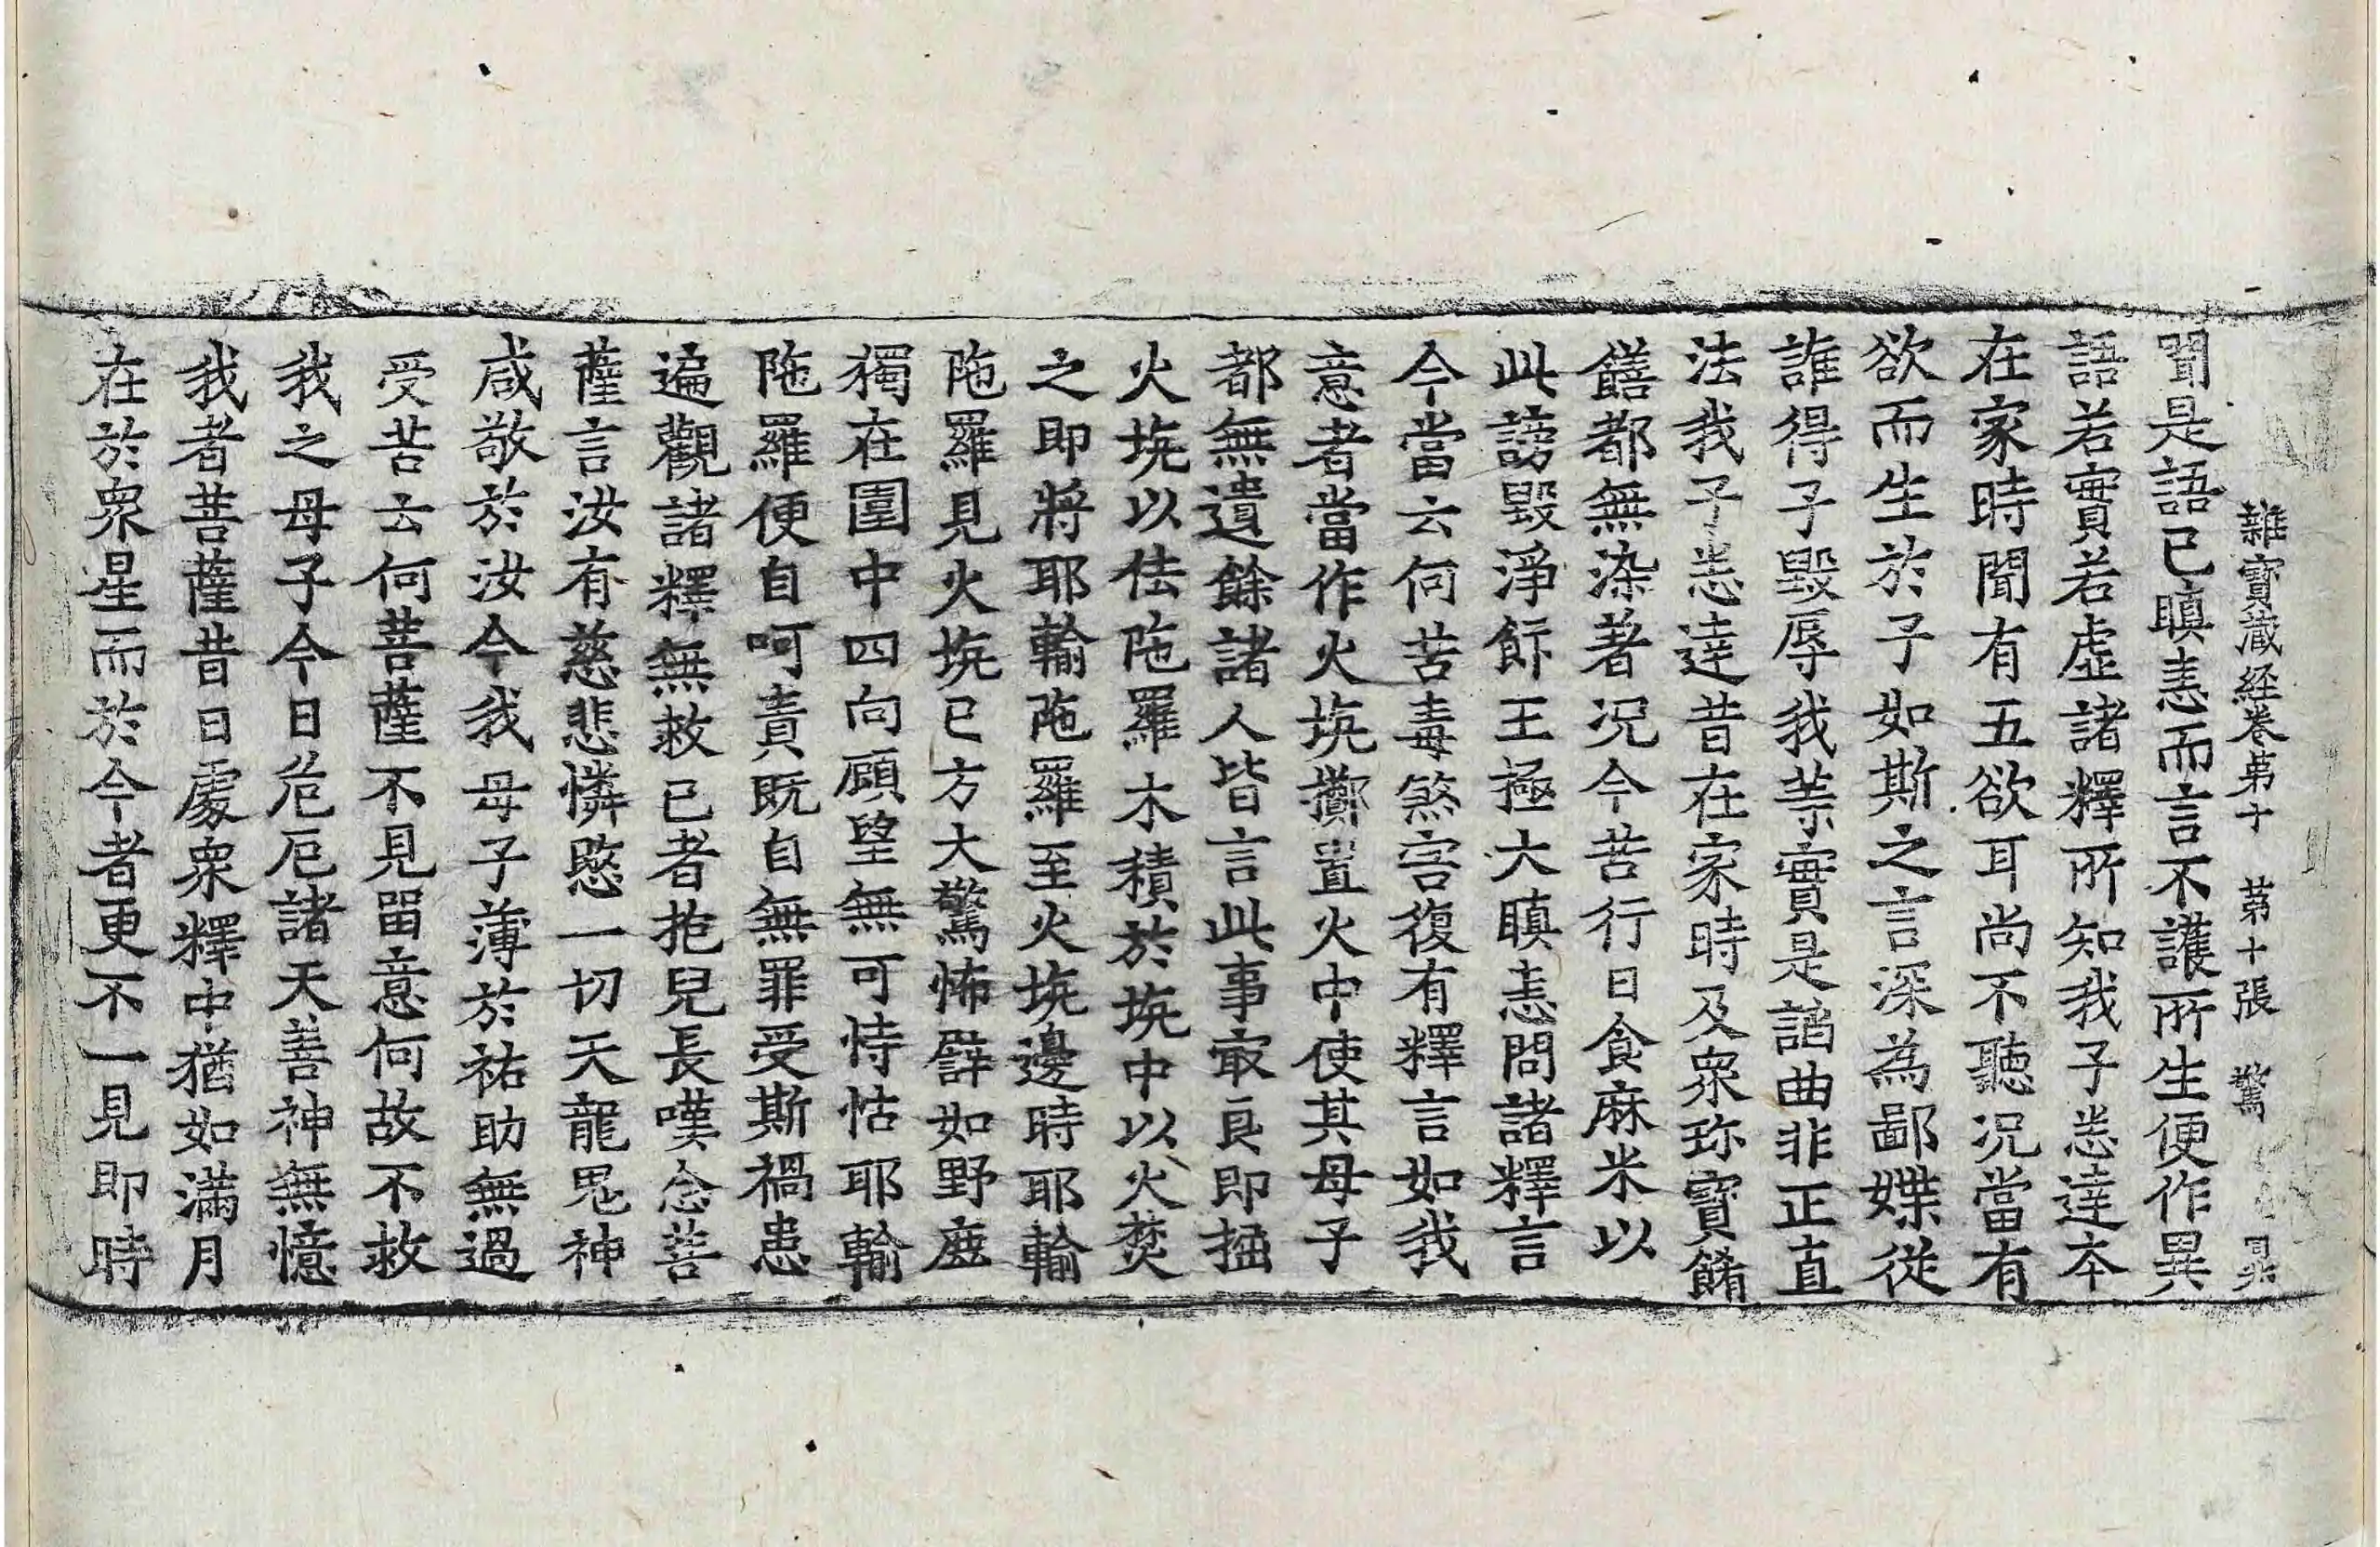 雜寶藏経卷第十 第十張 驚
聞是語已瞋恚而言不護所生便作異
語若實若虛諸釋所知我子悉達夲
在家時聞有五欲耳尚不聽况當有
欲而生於子如斯之言深為鄙媟從
誰得子毀辱我䓁實是諂曲非正直
法我子悉達昔在家時及衆珎寶餚
饍都無染著况今苦行日食麻米以
此謗毀淨飰王極大瞋恚問諸釋言
今當云何苦毒煞害復有釋言如我
意者當作火坑擲置火中使其母子
都無遺餘諸人皆言此事㝡良即掘
火坑以佉陁羅木積於坑中以火焚
之即將耶輸陁羅至火坑邊時耶輸
陁羅見火坑已方大驚怖譬如野鹿
獨在園中四向顧望無可恃怙耶輸
陁羅便自呵責既自無罪受斯禍患
遍觀諸釋無救已者抱兒長嘆念菩
薩言汝有慈悲憐愍一切天龍鬼神
咸敬於汝今我母子薄於祐助無過
受苦云何菩薩不見留意何故不救
我之母子今日危厄諸天善神無憶
我者菩薩昔日處衆釋中猶如滿月
在於衆星而於今者更不一見即時